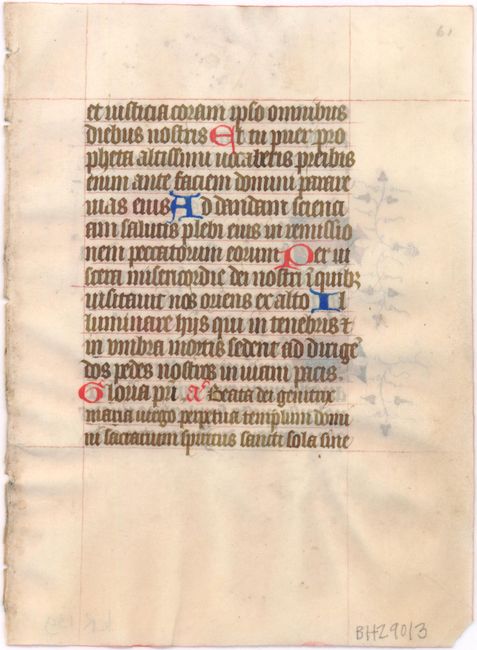 61
et iusticia coram ipso omnibus
diebus nostris Et tu puer pro
pheta altissimi vocaberis preibis
enim ante faciem domini parare
vias eius Ad dandam scienci
am salutis plebi eius in remissio
nem peccatorum eorum Per vi
scera misericordie dei nostri i quibz
visitavit nos oriens ex alto Il
luminare hijs qui in tenebris et
in umbra mortis sedent ad dirige
dos pedes nostros in viam pacis
Gloria pri a Beata dei genitrix
maria virgo perpetua templum domi
ni sacrarium spiritus sancti sola sine
BH29013